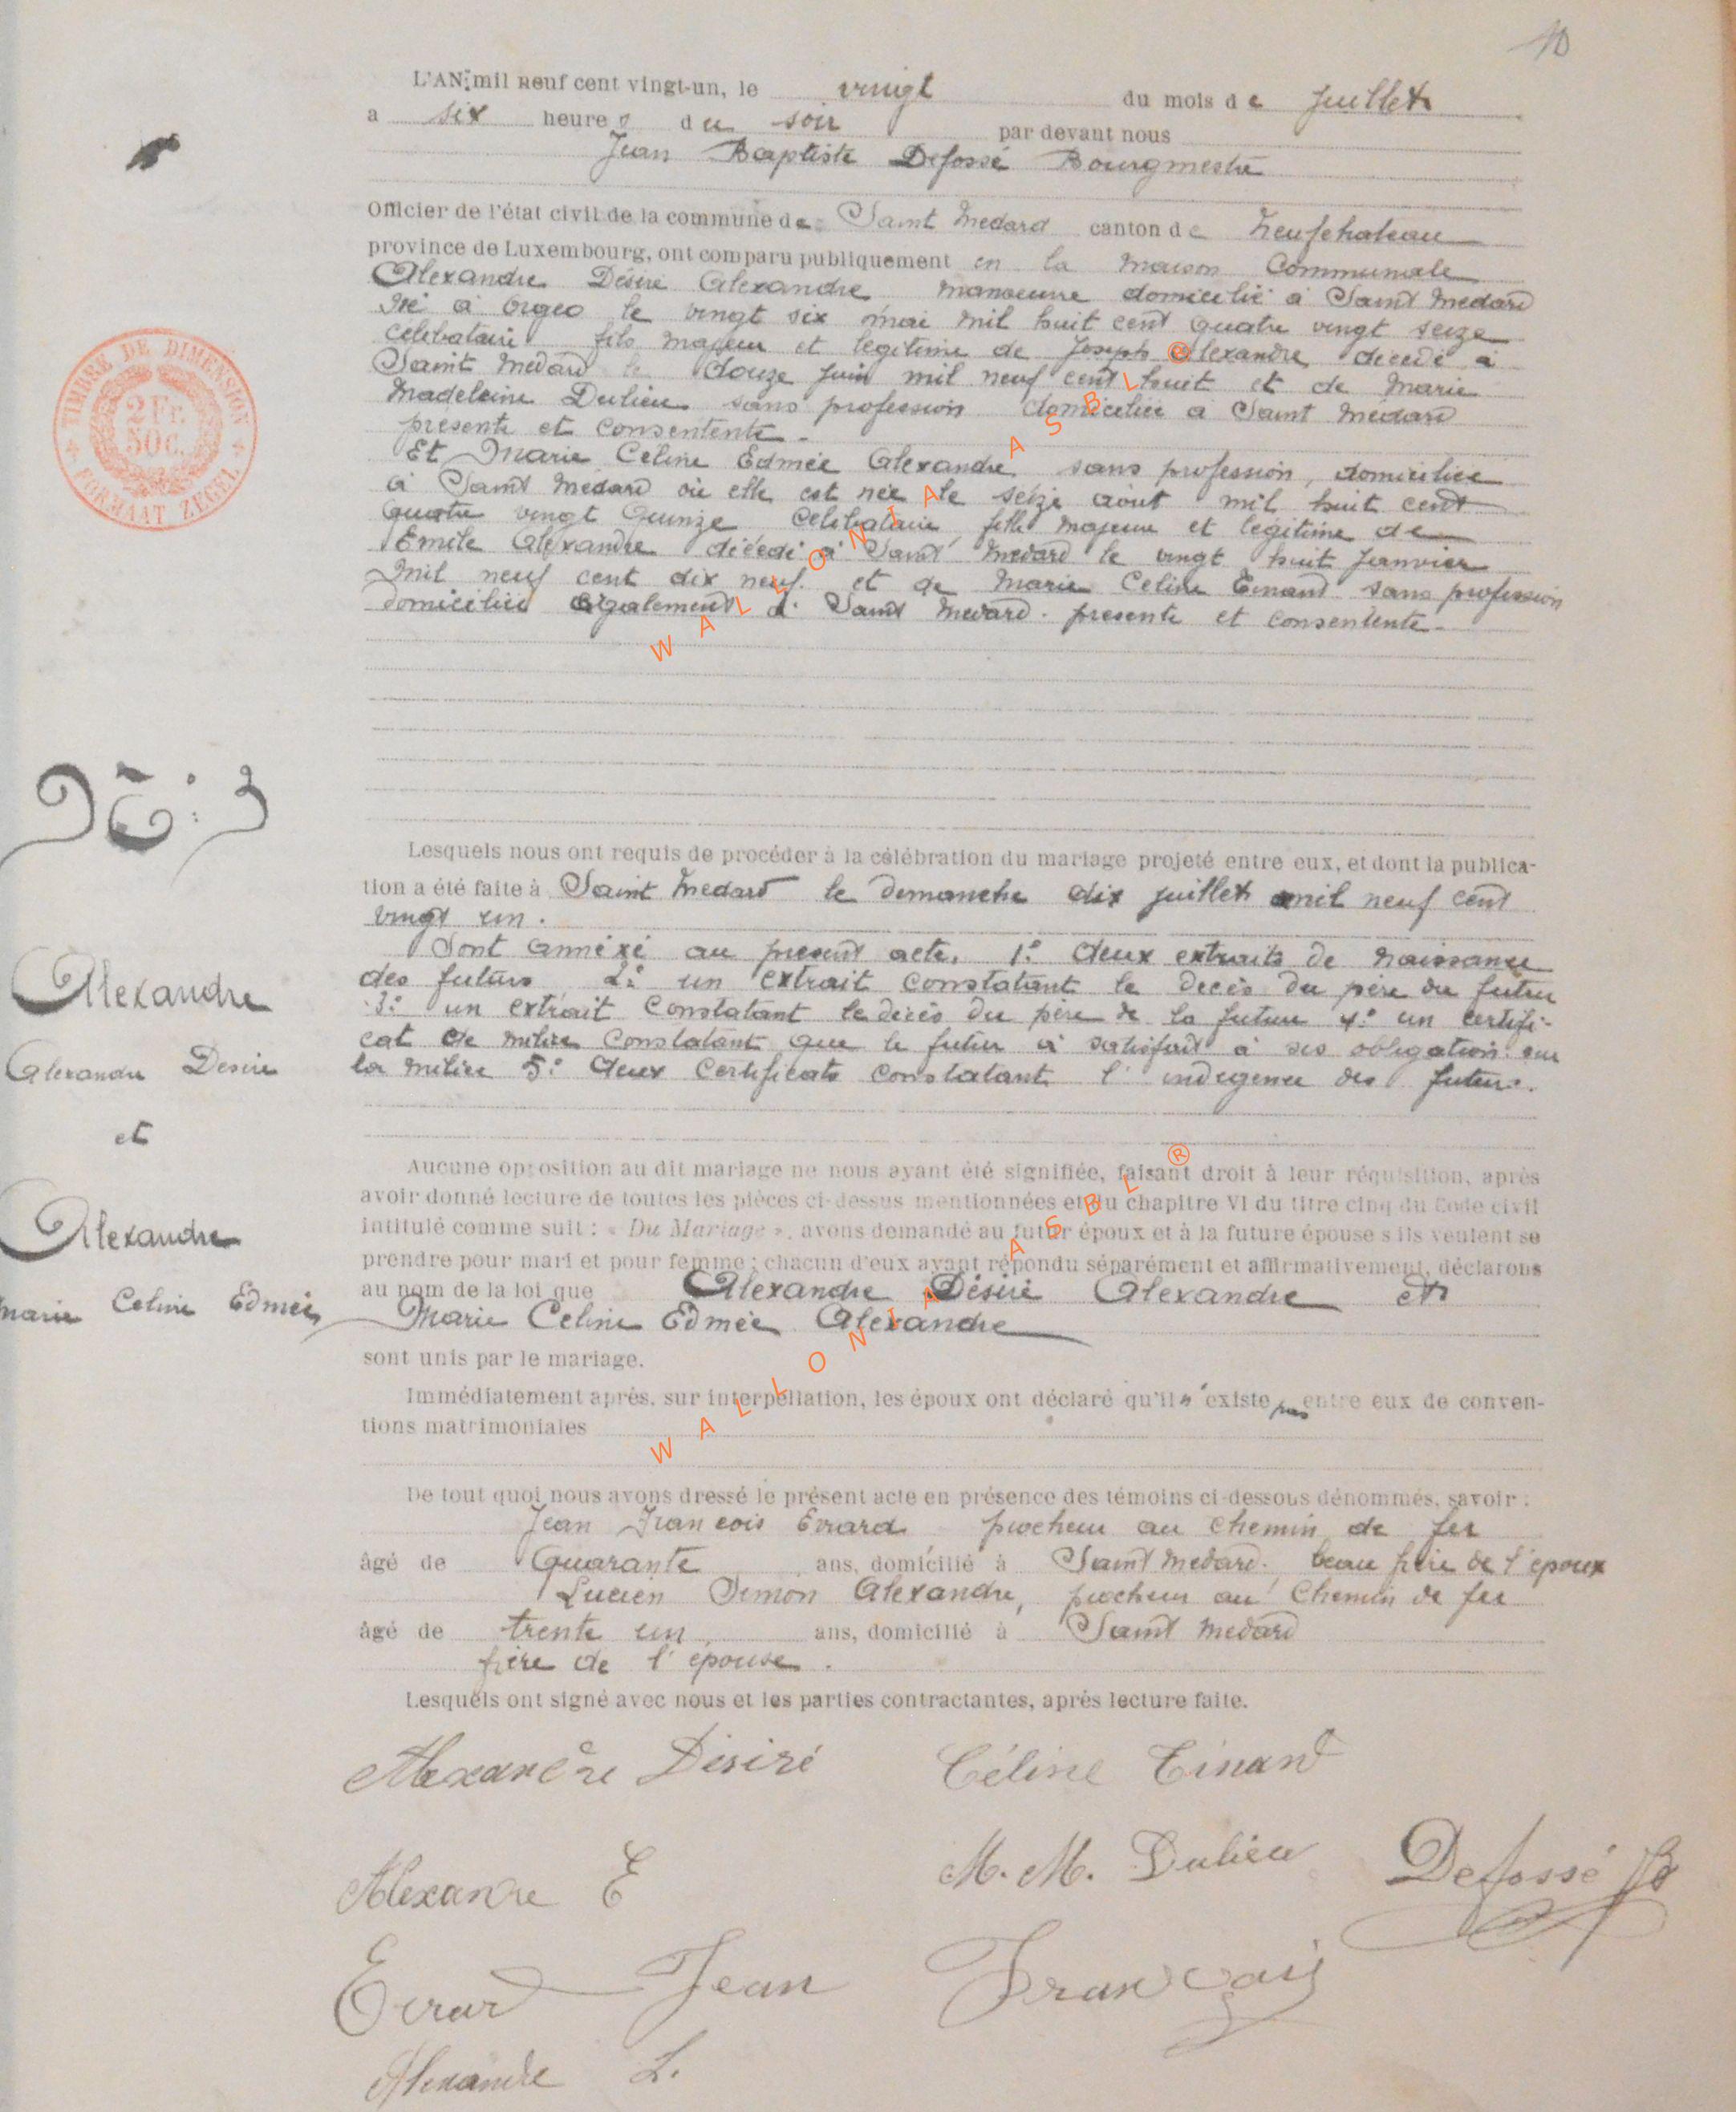 10
L'AN mil neuf cent vingt-un, le vingt du mois de juillet
a six heures du soir par devant nous
Jean Baptiste Defossé Bourgmestre
Officier de l'état civil de la commune de Saint Medard canton de Neufchateau
province de Luxembourg, ont comparu publiquement en la maison Communale
Alexandre Désiré Alexandre manoeuvre domicilié à Saint Medard
né à Orgeo le vingt six mai mil huit cent quatre vingt seize
celibataire fils majeur et legitime de Joseph Alexandre décedé à
Saint Medard le douze juin mil neuf cent huit et de Marie
Madeleine Dulieu sans profession domiciliée à Saint Médard
présente et consentente.
Et Marie Céline Edmée Alexandre sans profession, domiciliée
à Saint Medard où elle est née le seize août mil huit cent
quatre vingt Quinze Célibataire, fille majeure et legitime de
Emile Alexandre décédé à Saint Medard le vingt huit janvier
mil neuf cent dix neuf. et de Marie Celine Tinant sans profession
domiciliée également à Saint Medard. presente et consentente.
TIMBRE DE DIMENSION
2 Fr.
50 C.
FORMAAT ZEGEL
Lesquels nous ont requis de procéder à la célébration du mariage projeté entre eux, et dont la publica-
tion a été faite à Saint Medard le dimanche dix juillet mil neuf cent
vingt un.
Sont annéxé au present acte, 1° deux extraits de naissance
des futurs 2° un extrait constatant le decès du père du futur
3° un extrait Constatant le décès du père de la future 4° un certifi-
cat de milice Constatant que le futur a satisfait à ses obligation sur
la milice 5° deux Certificats constatant l'indigence des futurs.
Alexandre
Alexandre Desiré
et
Alexandre
Marie Celine Edmée
Aucune opposition au dit mariage ne nous ayant été signifiée, faisant droit à leur réquisition, après
avoir donné lecture de toutes les pièces ci-dessus mentionnées et du chapitre VI du titre cinq du Code civil
intitulé comme suit : « Du Mariage », avons demandé au futur époux et à la future épouse s'ils veulent se
prendre pour mari et pour femme ; chacun d'eux ayant répondu séparément et affirmativement, déclarons
au nom de la loi que Alexandre Désiré Alexandre et
Marie Celine Edmée Alexandre
sont unis par le mariage.
Immédiatement après, sur interpellation, les époux ont déclaré qu'il n'existe pas entre eux de conven-
tions matrimoniales
De tout quoi nous avons dressé le présent acte en présence des témoins ci-dessous dénommés, savoir :
Jean François Evrard piocheur au chemin de fer
âgé de Quarante ans, domicilié à Saint Medard. beau frère de l'époux
Lucien Simon Alexandre, piocheur au Chemin de fer
âgé de trente un ans, domicilié à Saint Medard
frère de l'épouse.
Lesquels ont signé avec nous et les parties contractantes, après lecture faite.
Alexandre Désiré Céline Tinant
Alexandre E M. M. Dulieu Defossé JB
Evrard Jean François
Alexandre L.
WALLONIA ASBL ®
WALLONIA ASBL ®